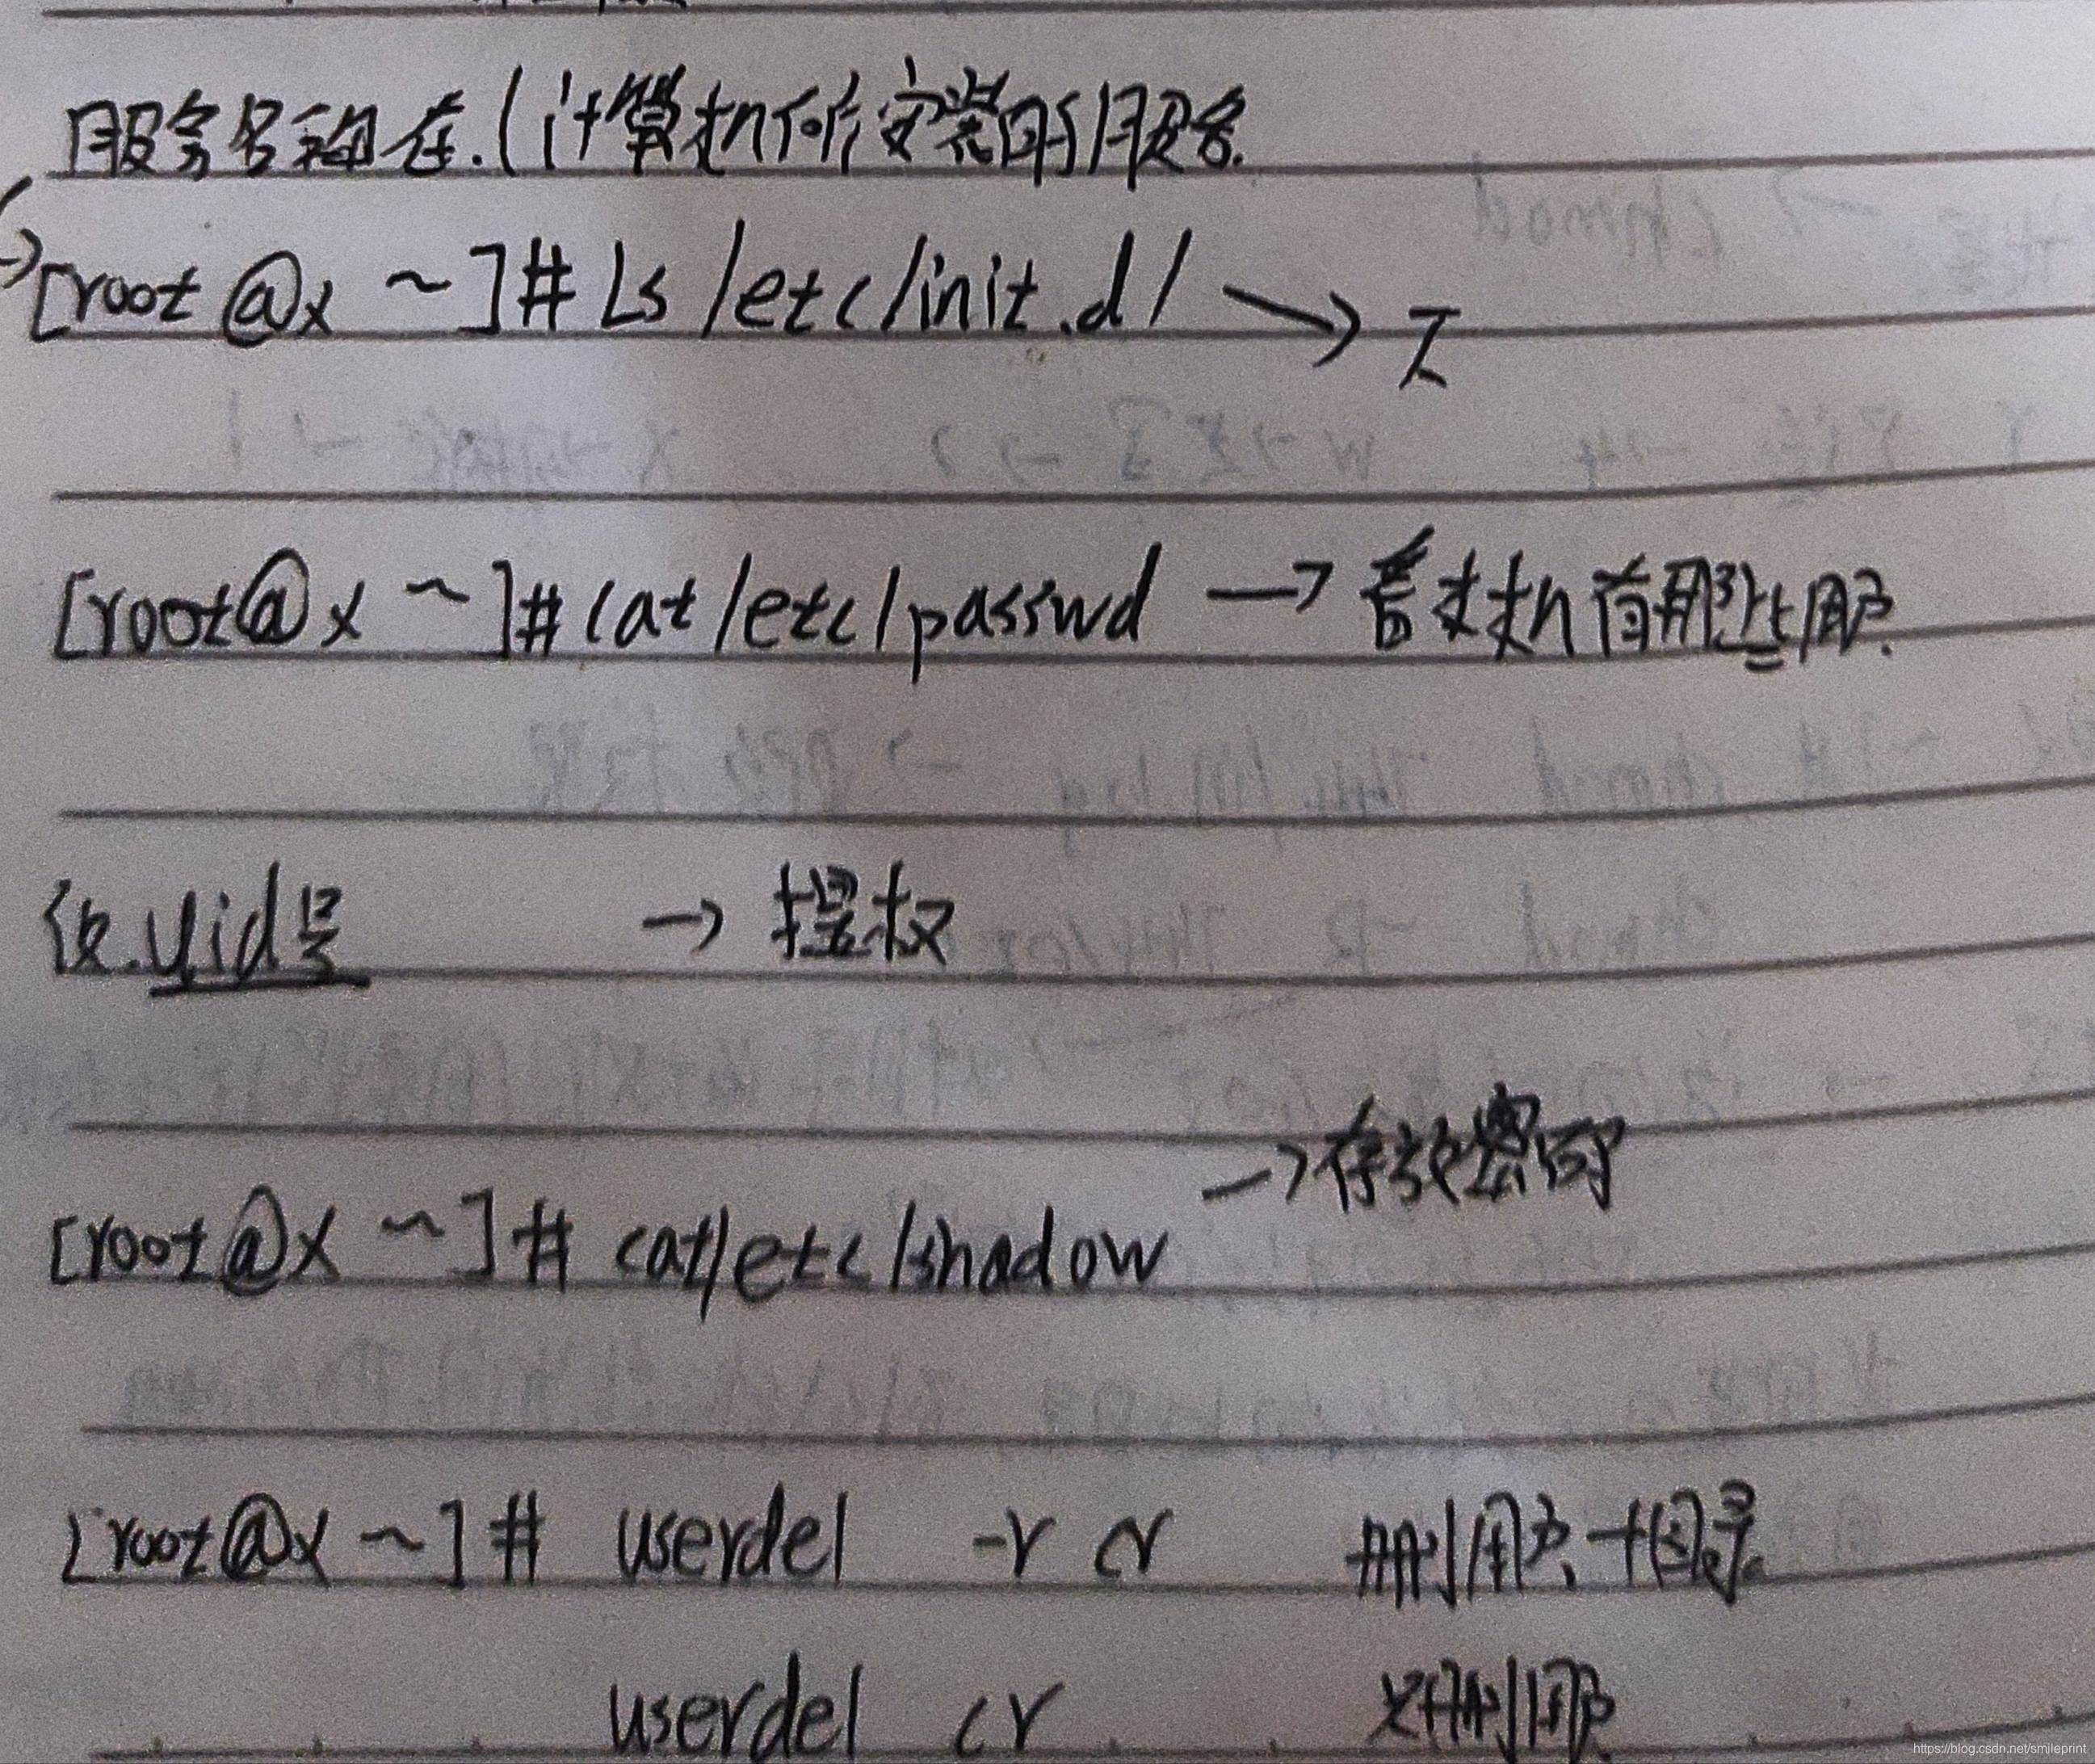 服务名称在.(计算机所安装的服务.
→[root@x ~]# Ls /etc/init.d/ → 下
[root@x ~]# cat /etc/passwd → 看本机有那些用户.
改.uid号 → 提权
→存放密码
[root@x ~]# cat/etc/shadow
[root@x ~]# userdel -r cr 删用户+目录
userdel cr 只删用户
https://blog.csdn.net/smileprint